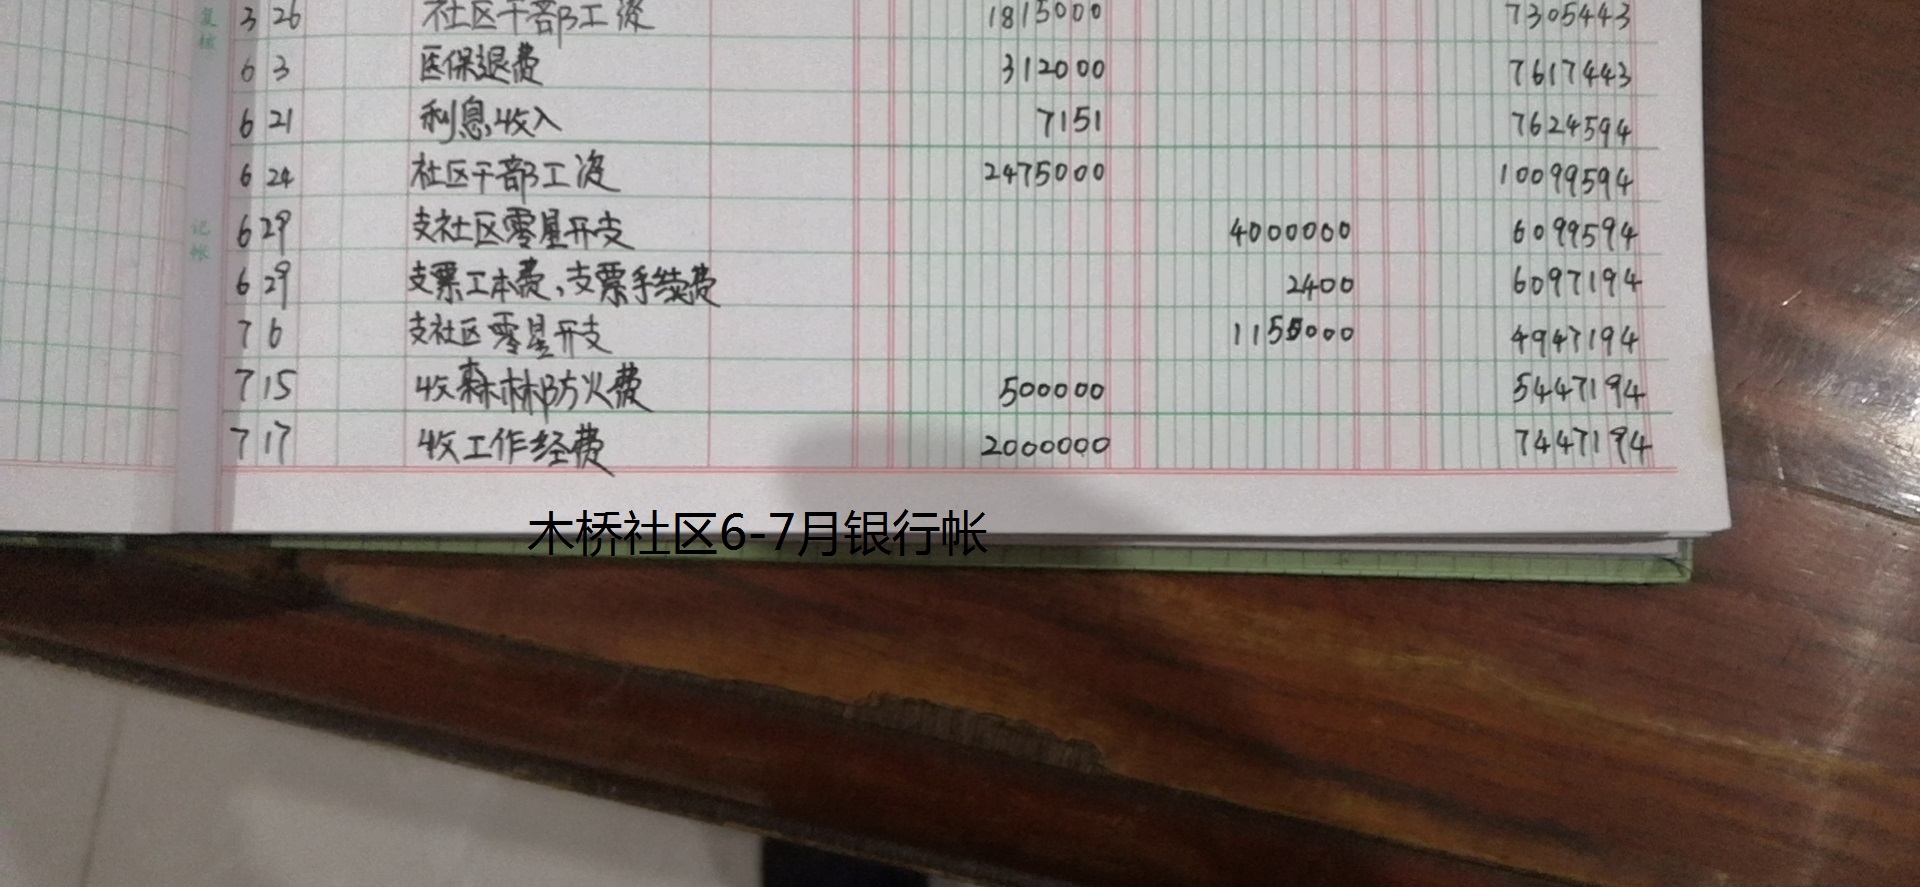 复核
3 26 社区干部工资 1815000 7305443
6 3 医保退费 312000 7617443
6 21 利息收入 7151 7624594
6 24 社区干部工资 2475000 10099594
记帐
6 29 支社区零星开支 4000000 6099594
6 29 支票工本费、支票手续费 2400 6097194
7 6 支社区零星开支 1155000 4947194
7 15 收森林防火费 500000 5447194
7 17 收工作经费 2000000 7447194
木桥社区6-7月银行帐